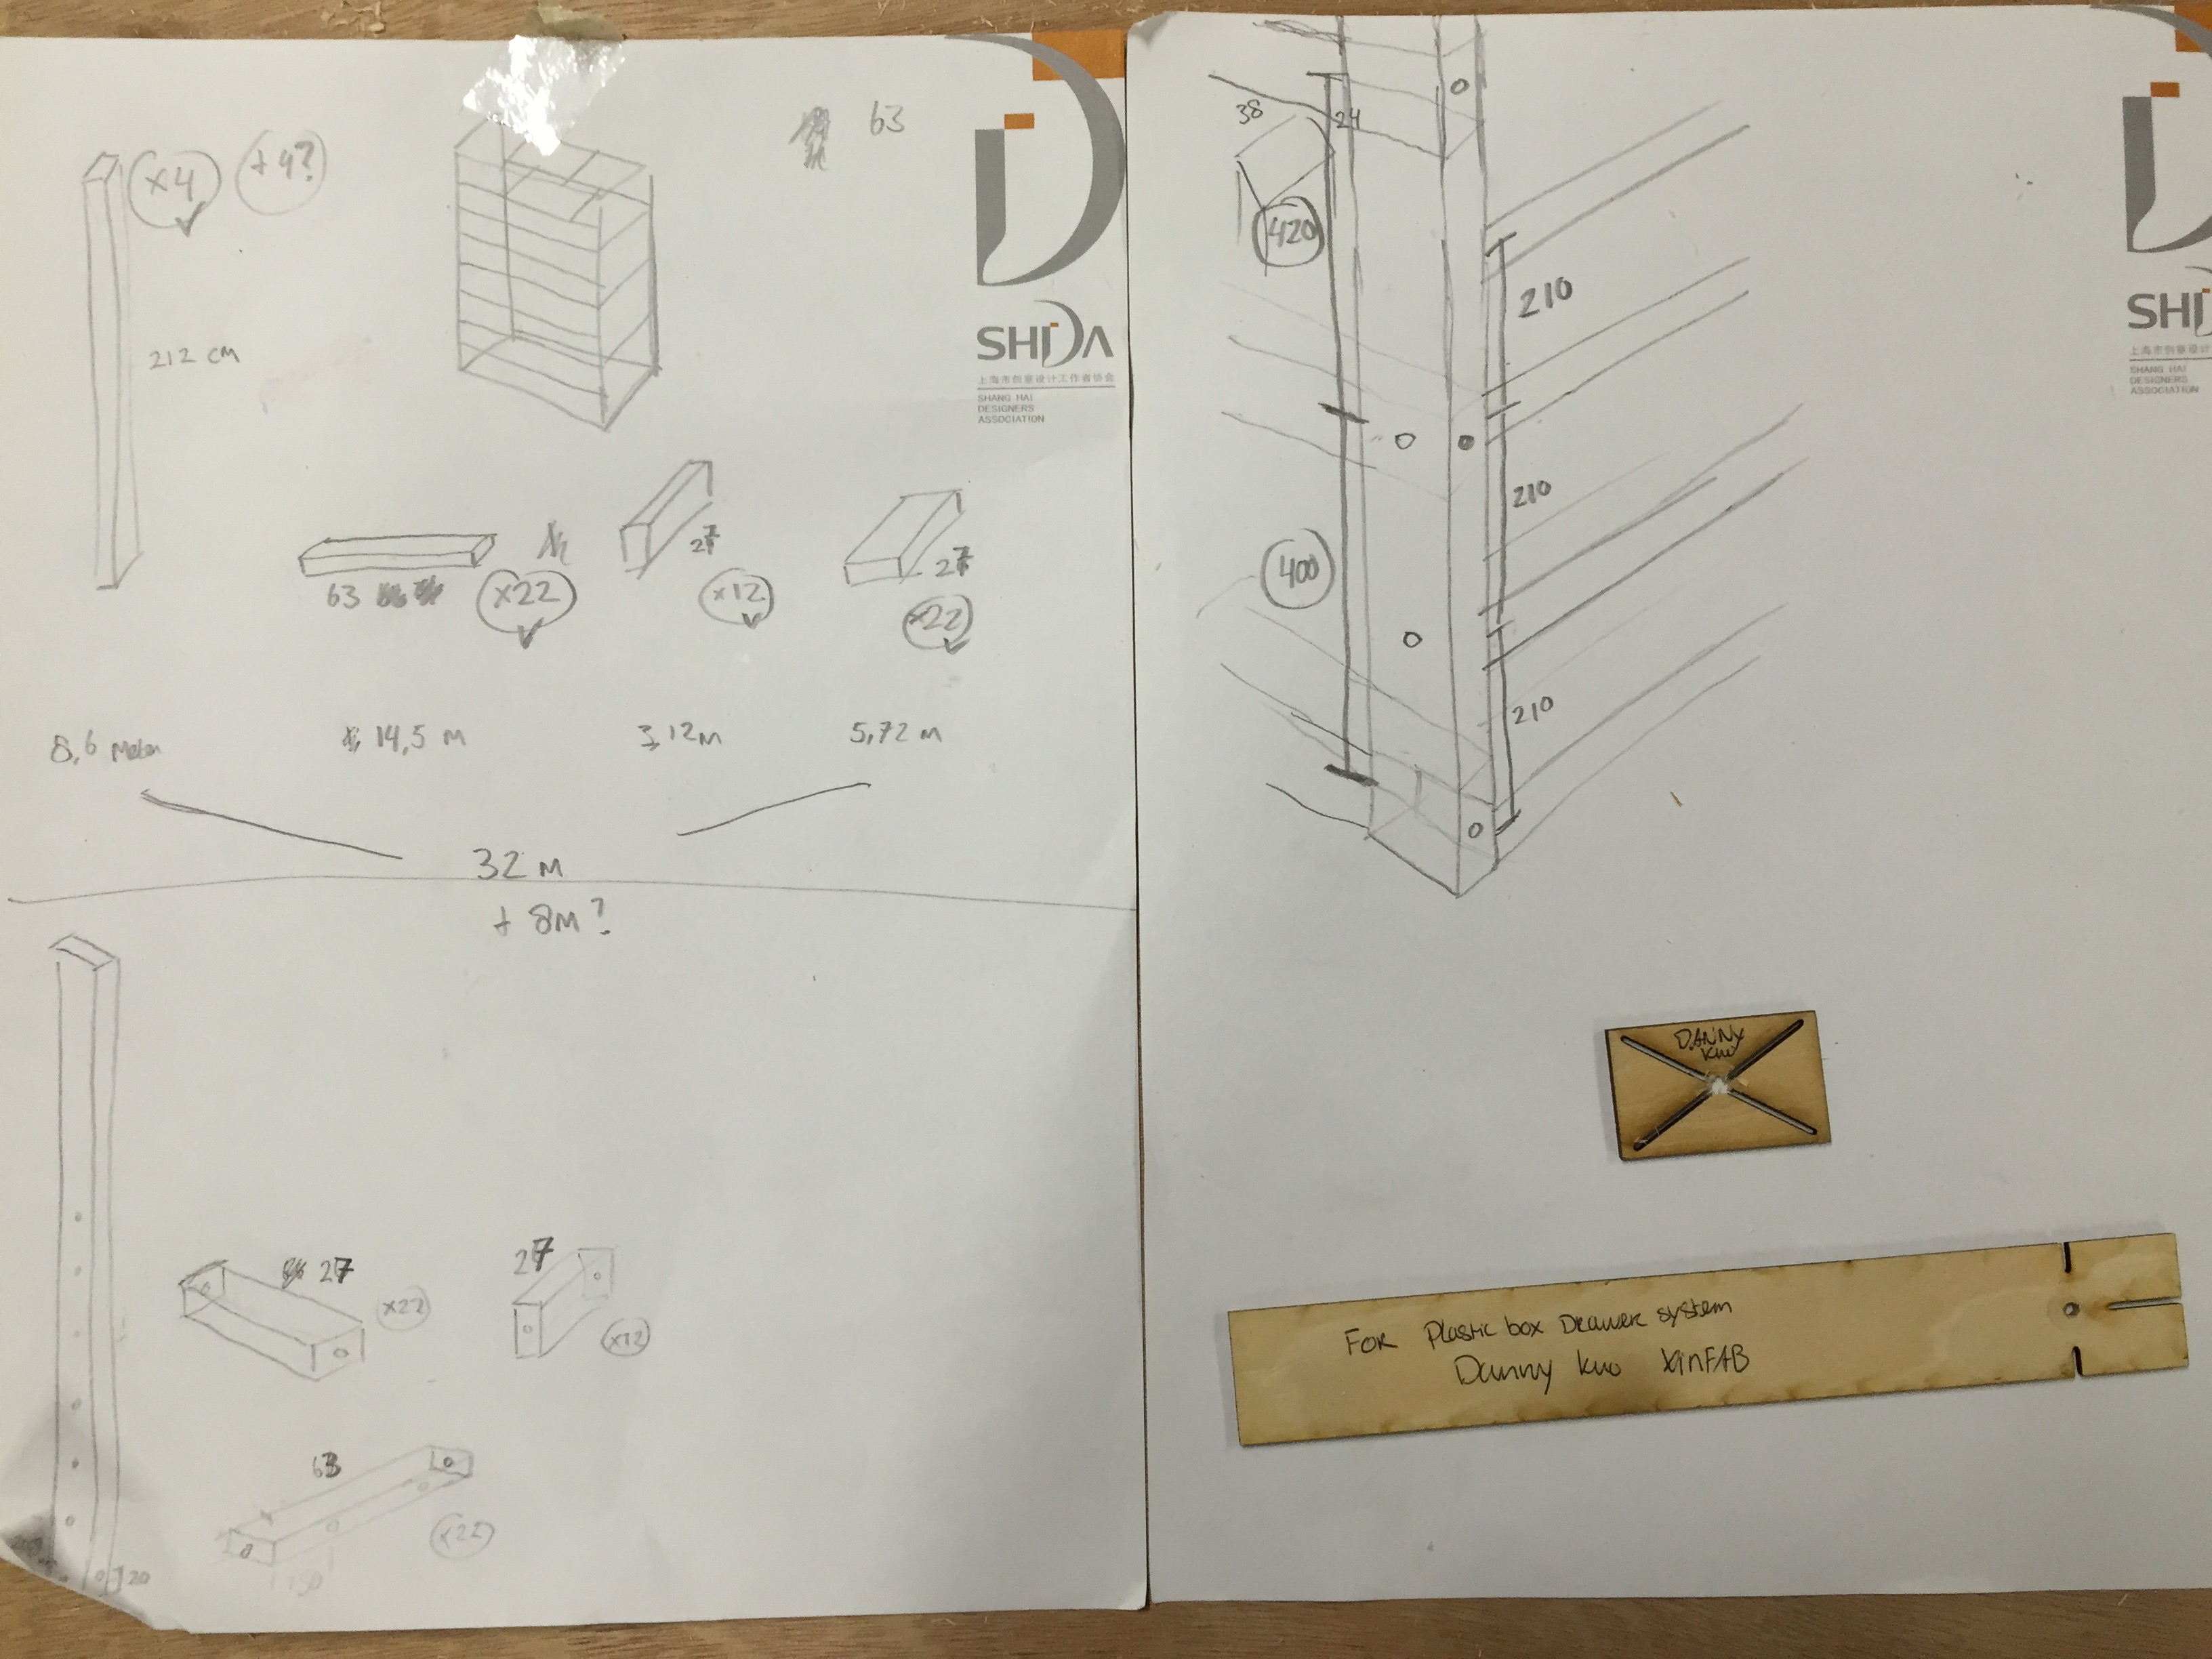 63
x4
+4?
212 cm
SHIDA
上海市创意设计工作者协会
SHANG HAI
DESIGNERS
ASSOCIATION
63
x22
27
x12
27
x22
8,6 Meter
14,5 m
3,12m
5,72 m
32 m
+ 8m?
27
x22
27
x12
63
x22
20
150
38
24
420
210
210
400
210
SHI
上海市创意设计
SHANG HAI
DESIGNERS
ASSOCIATION
DANNY
Kuo
FOR Plastic box Drawer system
Danny Kuo XinFAB